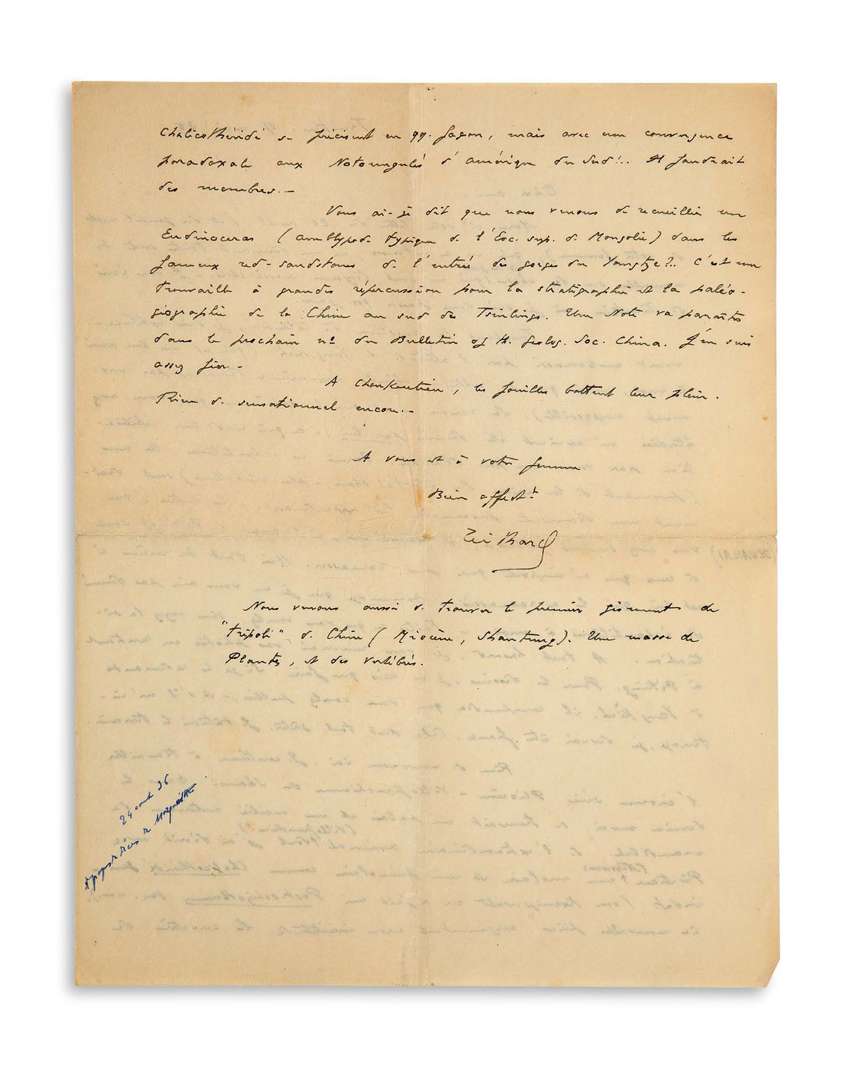 Chalicothéridé se précisent en qq. façon, mais avec une convergence
paradoxale aux Notongulés d'Amérique du Sud!.. Il faudrait
des membres.–
Vous ai-je dit que nous venons de recueillir un
Eudinoceras (amblypode typique de l'Eoc. sup. de Mongolie) dans les
fameux red-sandstones de l'entrée des gorges du Yangtze?.. C'est une
trouvaille à grandes répercussion pour la stratigraphie et la paléo-
géographie de la Chine au sud des Tsinlings. Une Note va paraître
dans le prochain nº du Bulletin of H. Geolog. Soc. China. J'en suis
assez fier.–
A Choukoutien, les fouilles battent leur plein.
Rien de sensationnel encore.–
A vous et à votre femme
Bien affectt
Teilhard
Nous venons aussi de trouver le premier gisement de
"tripoli" de Chine (Miocène, Shantung). Une masse de
Plantes, et des vertébrés.
24 36